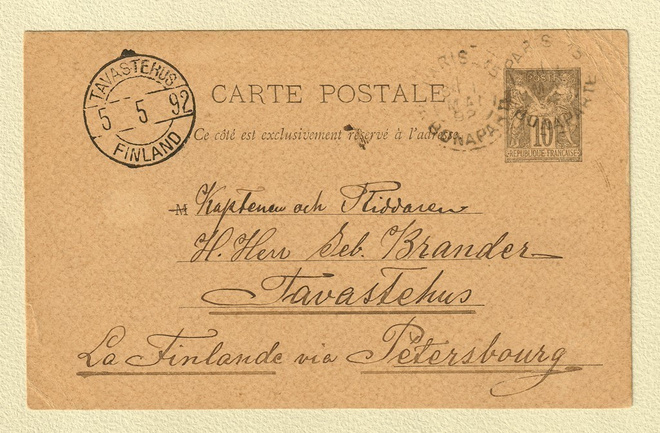 TAVASTEHUS
5 5 92
FINLAND
CARTE POSTALE
Ce côté est exclusivement réservé à l'adresse
PARIS
BONAPARTE
PARIS
BONAPARTE
POSTES
10
REPUBLIQUE FRANÇAISE
M Kaptenen och Riddaren
H. Herr Seb. Brander
Tavastehus
La Finlande via Pétersbourg